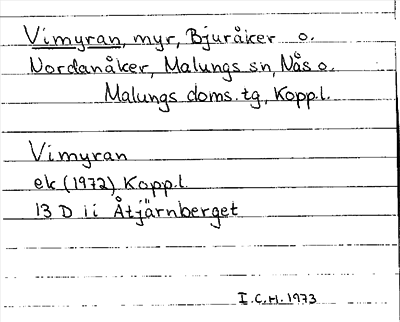 Vimyran, myr, Bjuråker o.
Nordanåker, Malungs sn, Nås o.
Malungs doms. tg, Kopp.l.
Vimyran
ek (1972) Kopp.l.
13 D ii Åtjärnberget
I.C.H. 1973